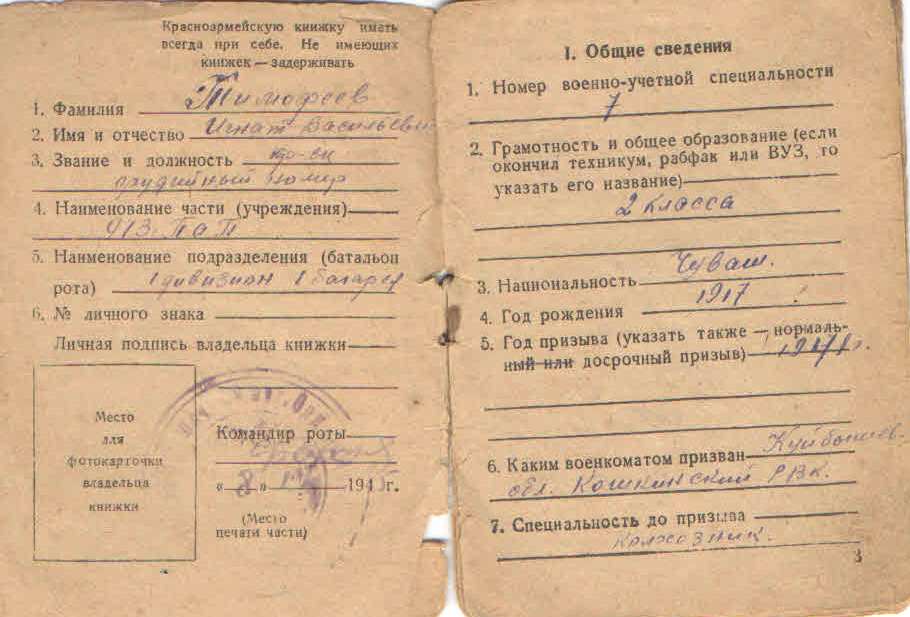 Красноармейскую книжку иметь
всегда при себе. Не имеющих
книжек — задерживать
1. Фамилия Тимофеев
2. Имя и отчество Игнат Васильевич
3. Звание и должность
орудийный номер
4. Наименование части (учреждения)
913 ПаП
5. Наименование подразделения (батальон
рота) 1 дивизион 1 батарея
6. № личного знака
Личная подпись владельца книжки
Место
для
фотокарточки
владельца
книжки
Командир роты
„ 8 " 1945г.
(Место
печати части)
1. Общие сведения
1. Номер военно-учетной специальности
7
2. Грамотность и общее образование (если
окончил техникум, рабфак или ВУЗ, то
указать его название)
2 класса
3. Национальность Чуваш.
4. Год рождения 1917
5. Год призыва (указать также — нормаль-
ный или досрочный призыв) г.
6. Каким военкоматом призван Куйбышев.
обл. Кошкинский РВК.
7. Специальность до призыва
Колхозник.
3